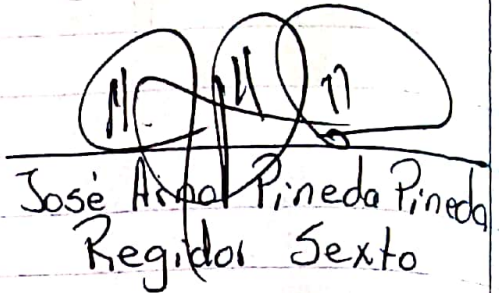 José Pineda Pineda
Regidor Sexto